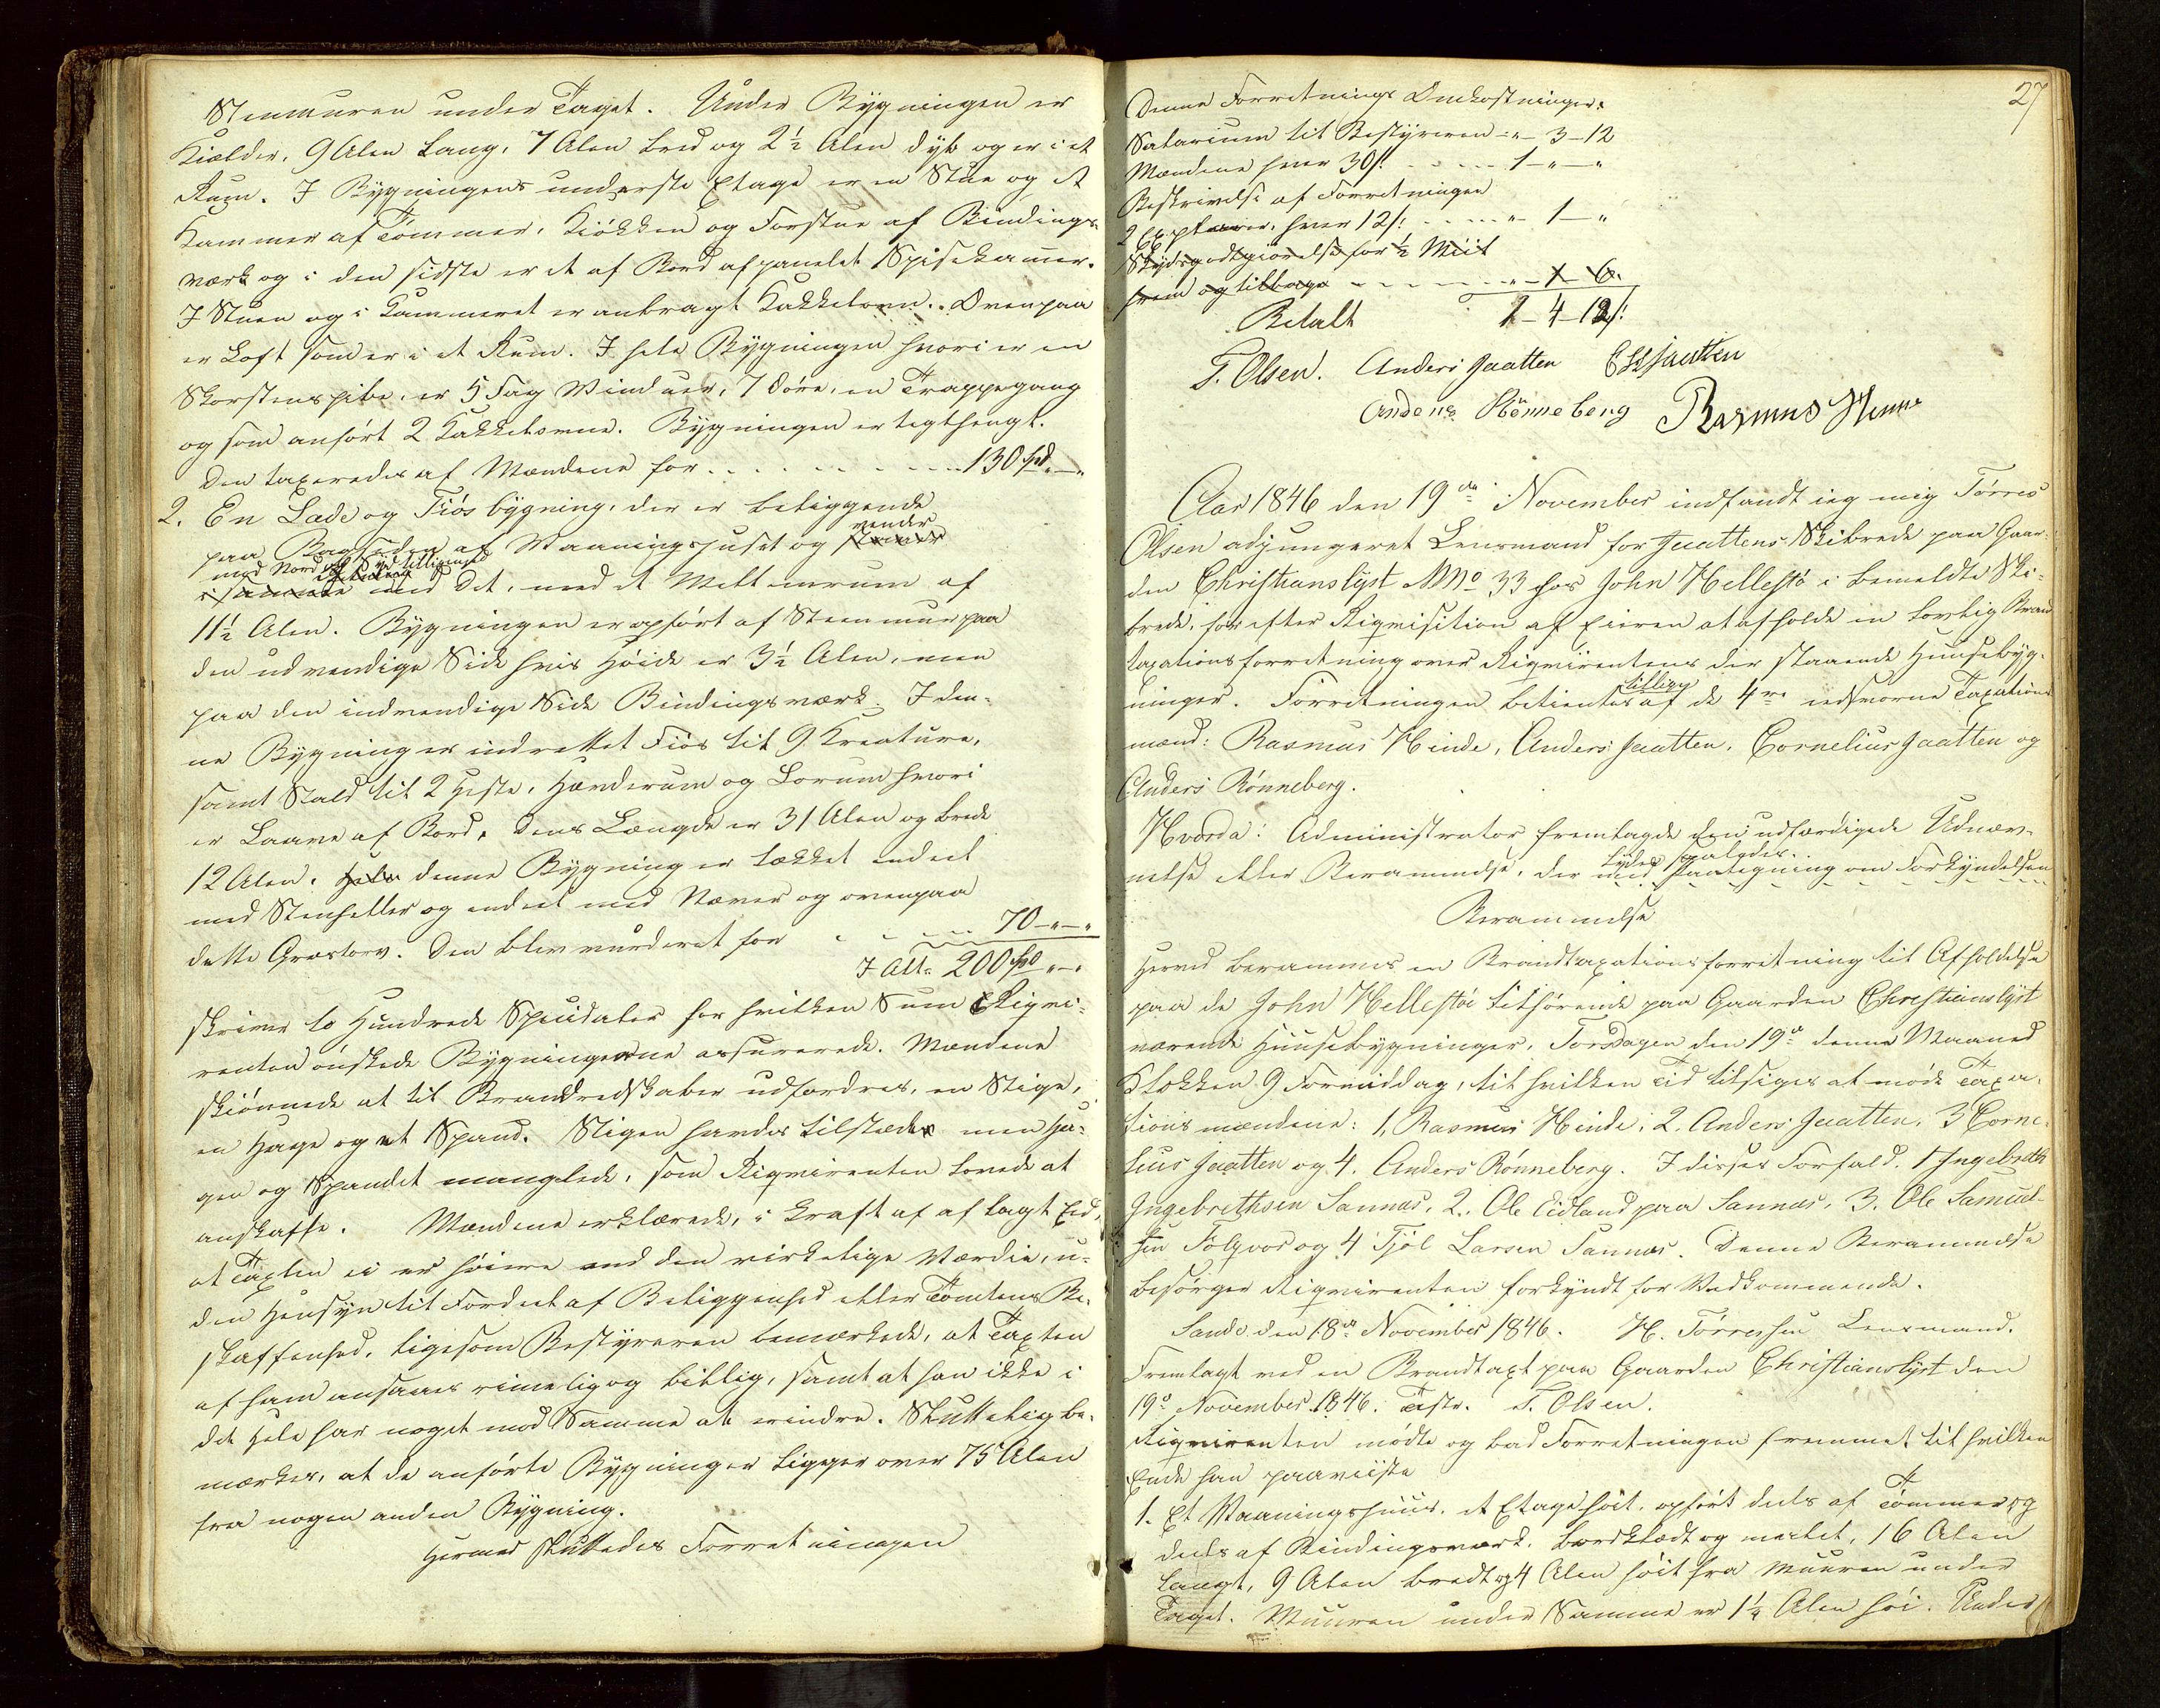 Steenmuren under Taget. Under Bygningen er
Kielder, 9 Alen lang, 7 Alen bred og 2½ Alen dyb og er i et
Rum. I Bygningens underste Etage er en Stue og et
Kammer af Tømmer, Kiøkken og Forstue af Bindings-
værk og i den sidste er et af Bord afpanelet Spisekamer.
I Stuen og i Kammeret er anbragt Kakkelovn. Ovenpaa
er Loft som er i et Rum. I hele Bygningen hvori er en
Skorsteenspibe, er 5 Fag Vinduer, 7 Døre, en Trappegang
og som anført 2 Kakkelovne. Bygningen er tegthengt.
Den taxeredes af Mændene for . . . . . . . . 130 Spd. - "
2. En Lade og Fiøsbygning, der er beliggende
paa Bagsiden af Vaaningshuset og vender
med Nord og Syd tilligemed
det, med et Mellemrum af
11½ Alen. Bygningen er opført af Steenmur paa
den udvendige Side hvis Høide er 3½ Alen, men
paa den indvendige Side Bindingsværk. I den-
ne Bygning er indrettet Fiøs til 9 Kreature,
samt Stald til 2 Heste, Hønderum og Lorum hvori
er Laave af Bord. Dens Længde er 31 Alen og brede
12 Alen. Hele denne Bygning er tækket endeel
med Steenheller og endeel med Næver og ovenpaa
dette Græstorv. Den blev vurderet for . . . . 70 - " - "
I Alt: 200 Spd " - "
skriver to Hundrede Speciedaler for hvilken Sum Reqvi-
renten ønskede Bygningerne assurerede. Mændene
skiønnede at til Brandredskaber udfordres, en Stige,
en Hage og et Spand. Stigen havdes tilstæde men Ha-
gen og Spandet manglede, som Reqvirenten lovede at
anskaffe. Mændene erklærede, i Kraft af aflagt Eed,
at Taxten ei er høiere end den virkelige Værdie, u-
den Hensyn til Fordeel af Beliggenhed eller Tomtens Be-
skaffenhed, ligesom Bestyreren bemærkede, at Taxten
af ham ansaaes rimelig og billig, samt at han ikke i
det Hele har noget mod Samme at erindre. Sluttelig be-
mærkes, at de anførte Bygninger ligger over 75 Alen
fra nogen anden Bygning.
Hermed sluttedes Forretningen
27
Denne Forretnings Omkostninger:
Salarium til Bestyreren - " - 3 - 12
Mændene hver 30 s. . . . . . 1 - " - "
Beskrivelse af Forretningen
2 Exemplarer, hver 12 s. . . . . " - 1 - "
Skydsgodtgiørelse for ½ Miil
frem og tilbage - - - - - " - 1 - 6.
Betalt 1 - 4 - 12 s.
T. Olsen. Anders Jaatten CSJaatten
Anders Rönneberg Rasmus Hinne
Aar 1846 den 19de November indfandt ieg mig Tørres
Olsen adjungeret Lensmand for Jaattens Skibrede paa Gaar-
den Christianslyst MNo 33 hos John Hellestø i bemeldte Ski-
brede, for efter Reqvisition af Eieren at afholde en lovlig Brand-
taxationsforretning over Reqvirentens der staaende Huusebyg-
ninger. Forretningen betientes tillige af de 4re eedsvorne Taxations-
mænd: Rasmus Hinde, Anders Jaatten, Cornelius Jaatten og
Anders Rønneberg.
Hvorda: Administrator fremlagde den udfærdigede Udnæv-
nelse eller Berammelse, der lyder saaledes.
med Paategning om Forkyndelsen
Berammelse
Herved berammes en Brandtaxationsforretning til Afholdelse
paa de John Hellestøe tilhørende paa Gaarden Christianslyst
værende Huusebygninger, Torsdagen den 19de denne Maaned
Klokken 9 Formiddag, til hvilken Tid tilsiges at møde Taxa-
tionsmændene: 1, Rasmus Hinde, 2. Anders Jaatten, 3 Corne-
lius Jaatten og 4. Anders Rønneberg. I disses Forfald. 1 Ingebreth
Ingebrethsen Sannæs, 2. Ole Eidland paa Sannæs, 3. Ole Samuel-
sen Folqvor og 4 Tjøl Larsen Sannæs. Denne Berammelse
besørger Reqvirenten forkyndt for Vedkommende.
Sande den 18de November 1846. H. Tørressen Lensmand.
Fremlagt ved en Brandtaxt paa Gaarden Christianslyst den
19de November 1846. Testr. T. Olsen.
Reqvirenten mødte og bad Forretningen fremmet til hvilken
Ende han paaviiste
1. Et Vaaningshuus, et Etage høit, opført deels af Tømmer og
deels af Bindingsværk, bordklædt og malet, 16 Alen
langt, 9 Alen bredt og 4 Alen høit fra Muuren under
Taget. Muuren under Samme er 1¼ Alen høi. Under